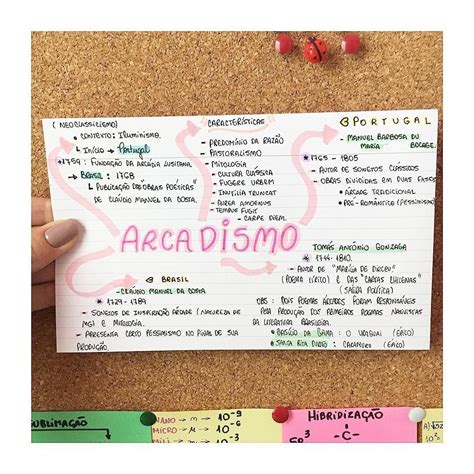 (NEOCLASSICISMO)
• CONTEXTO: Iluminismo.
↳ INÍCIO → Portugal
*1756: FUNDAÇÃO DA ARCÁDIA LUSITANA.
→ BRASIL: 1768
↳ PUBLICAÇÃO DAS "OBRAS POÉTICAS"
DE CLÁUDIO MANUEL DA COSTA.
CARACTERÍSTICAS
- PREDOMÍNIO DA RAZÃO
- PASTORALISMO
- MITOLOGIA
- CULTURA CLÁSSICA
- FUGERE URBEM
- INUTILIA TRUNCAT
- AUREA
- TEMPUS FUGIT
- CARPE DIEM.
PORTUGAL
- MANUEL BARBOSA DU
MARIA BOCAGE.
*1765 - 1805
- AUTOR DE SONETOS CLÁSSICOS
- OBRAS DIVIDIDAS EM DUAS FASES
• ÁRCADE TRADICIONAL
• PRÉ-ROMÂNTICO (PESSIMISMO)
ARCADISMO
BRASIL
- CLÁUDIO MANUEL DA COSTA
*1729 - 1789
- SONETOS DE INSPIRAÇÃO ÁRCADE (NATUREZA DE
MG) E MITOLOGIA.
- APRESENTA CERTO PESSIMISMO NO FINAL DE SUA
PRODUÇÃO.
TOMÁS ANTÔNIO GONZAGA
*1744 - 1810.
- AUTOR DE "MARÍLIA DE DIRCEU"
(POEMA LÍRICO) E DAS "CARTAS CHILENAS"
(SÁTIRA POLÍTICA)
OBS: DOIS POEMAS ÁRCADES FORAM RESPONSÁVEIS
PELA PRODUÇÃO DOS PRIMEIROS POEMAS
DA LITERATURA BRASILEIRA.
• BASÍLIO DA GAMA: O URAGUAI (ÉPICO)
• SANTA RITA DURÃO: CARAMURU (ÉPICO)
SUBLIMAÇÃO
NANO → n → 10⁻⁹
MICRO → μ → 10⁻⁶
MILI → m → 10⁻³
HIBRIDIZAÇÃO
SP³ -C-